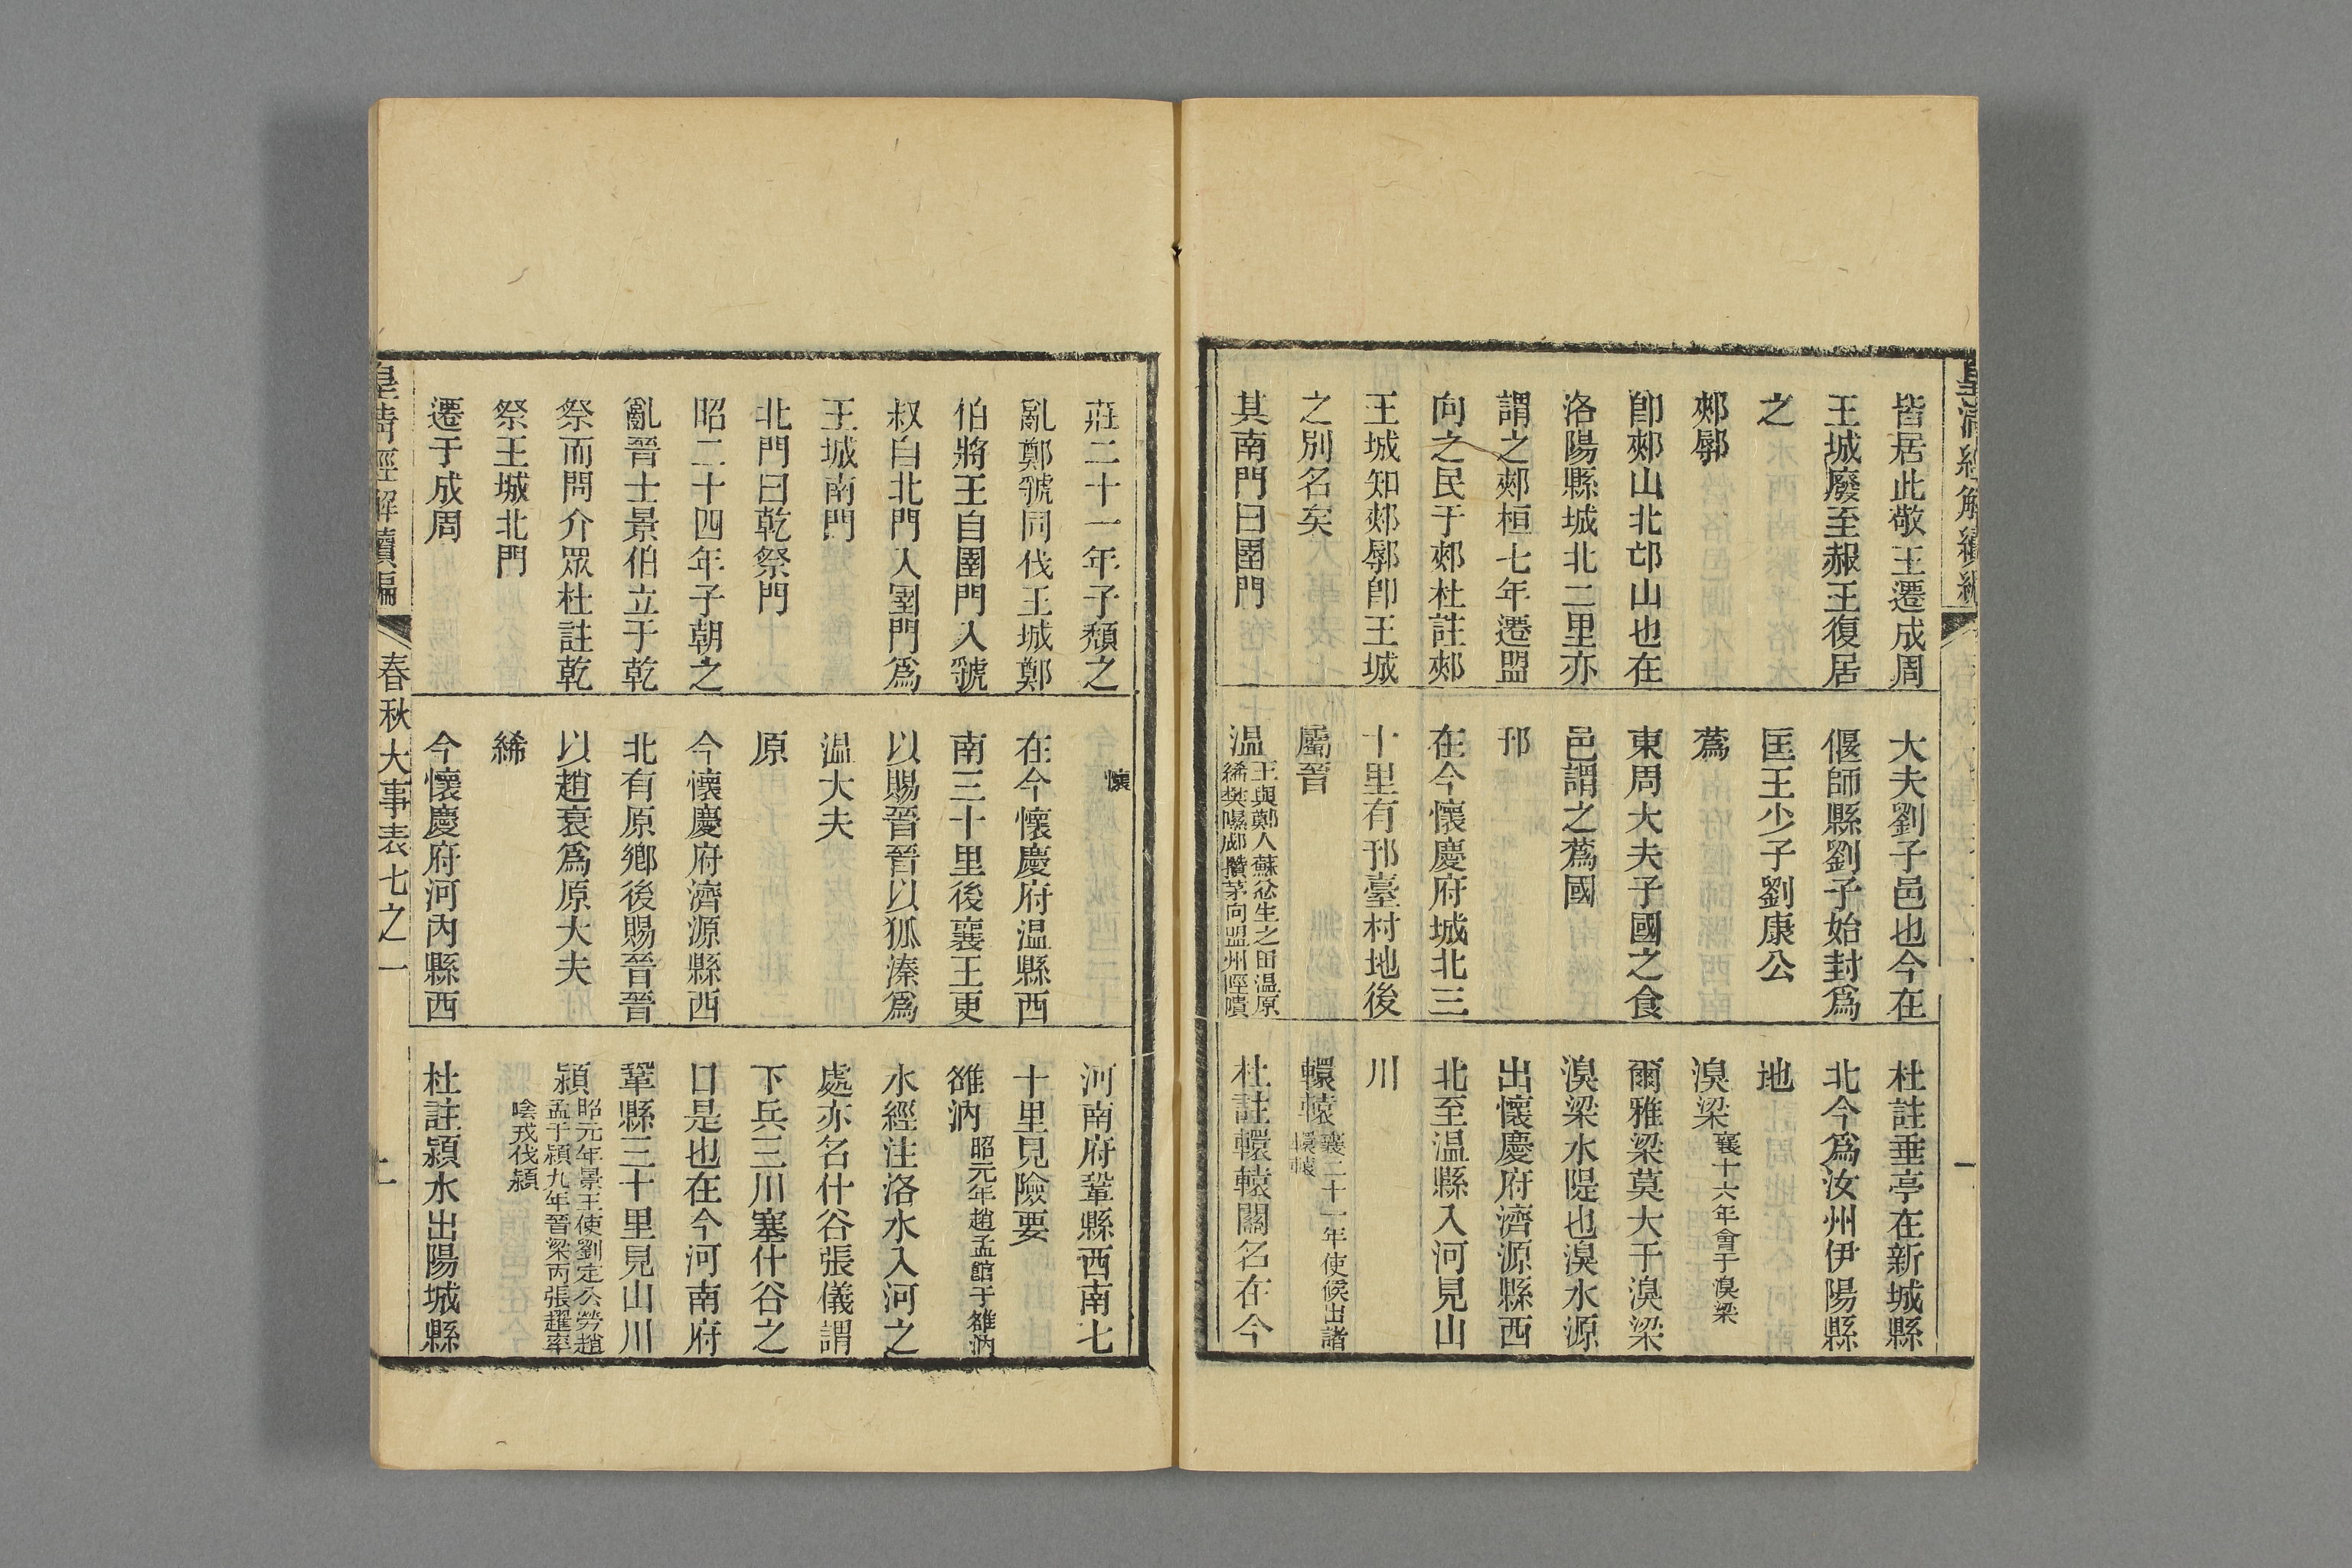 皆居此敬王遷成周
王城廢至赧王復居
之
郟鄏
卽郟山北邙山也在
洛陽縣城北二里亦
謂之郟桓七年遷盟
向之民于郟杜註郟
王城知郟鄏卽王城
之別名矣
其南門曰圉門
大夫劉子邑也今在
偃師縣劉子始封爲
匡王少子劉康公
蔿
東周大夫子國之食
邑謂之蔿國
邘
在今懷慶府城北三
十里有邘臺村地後
屬晉
温
王與鄭人蘇忿生之田温原
絺樊隰郕攢茅向盟州陘隤
杜註垂亭在新城縣
北今爲汝州伊陽縣
地
湨梁 襄十六年會于湨梁
爾雅梁莫大于湨梁
湨梁水隄也湨水源
出懷慶府濟源縣西
北至温縣入河見山
川
轘轅
襄二十一年使候出諸
轘轅
杜註轘轅關名在今
莊二十一年子頽之
亂鄭虢同伐王城鄭
伯將王自圉門入虢
叔自北門入圉門爲
王城南門
北門曰乾祭門
昭二十四年子朝之
亂晉士景伯立于乾
祭而問介眾杜註乾
祭王城北門
遷于成周
懷
在今懷慶府温縣西
南三十里後襄王更
以賜晉晉以狐溱爲
温大夫
原
今懷慶府濟源縣西
北有原鄉後賜晉晉
以趙衰爲原大夫
絺
今懷慶府河內縣西
河南府鞏縣西南七
十里見險要
雒汭 昭元年趙孟館于雒汭
水經注洛水入河之
處亦名什谷張儀謂
下兵三川塞什谷之
口是也在今河南府
鞏縣三十里見山川
潁
昭元年景王使劉定公勞趙
孟于潁九年晉梁丙張趯率
陰戎伐潁
杜註潁水出陽城縣
皇清經解續編
春秋大事表七之一